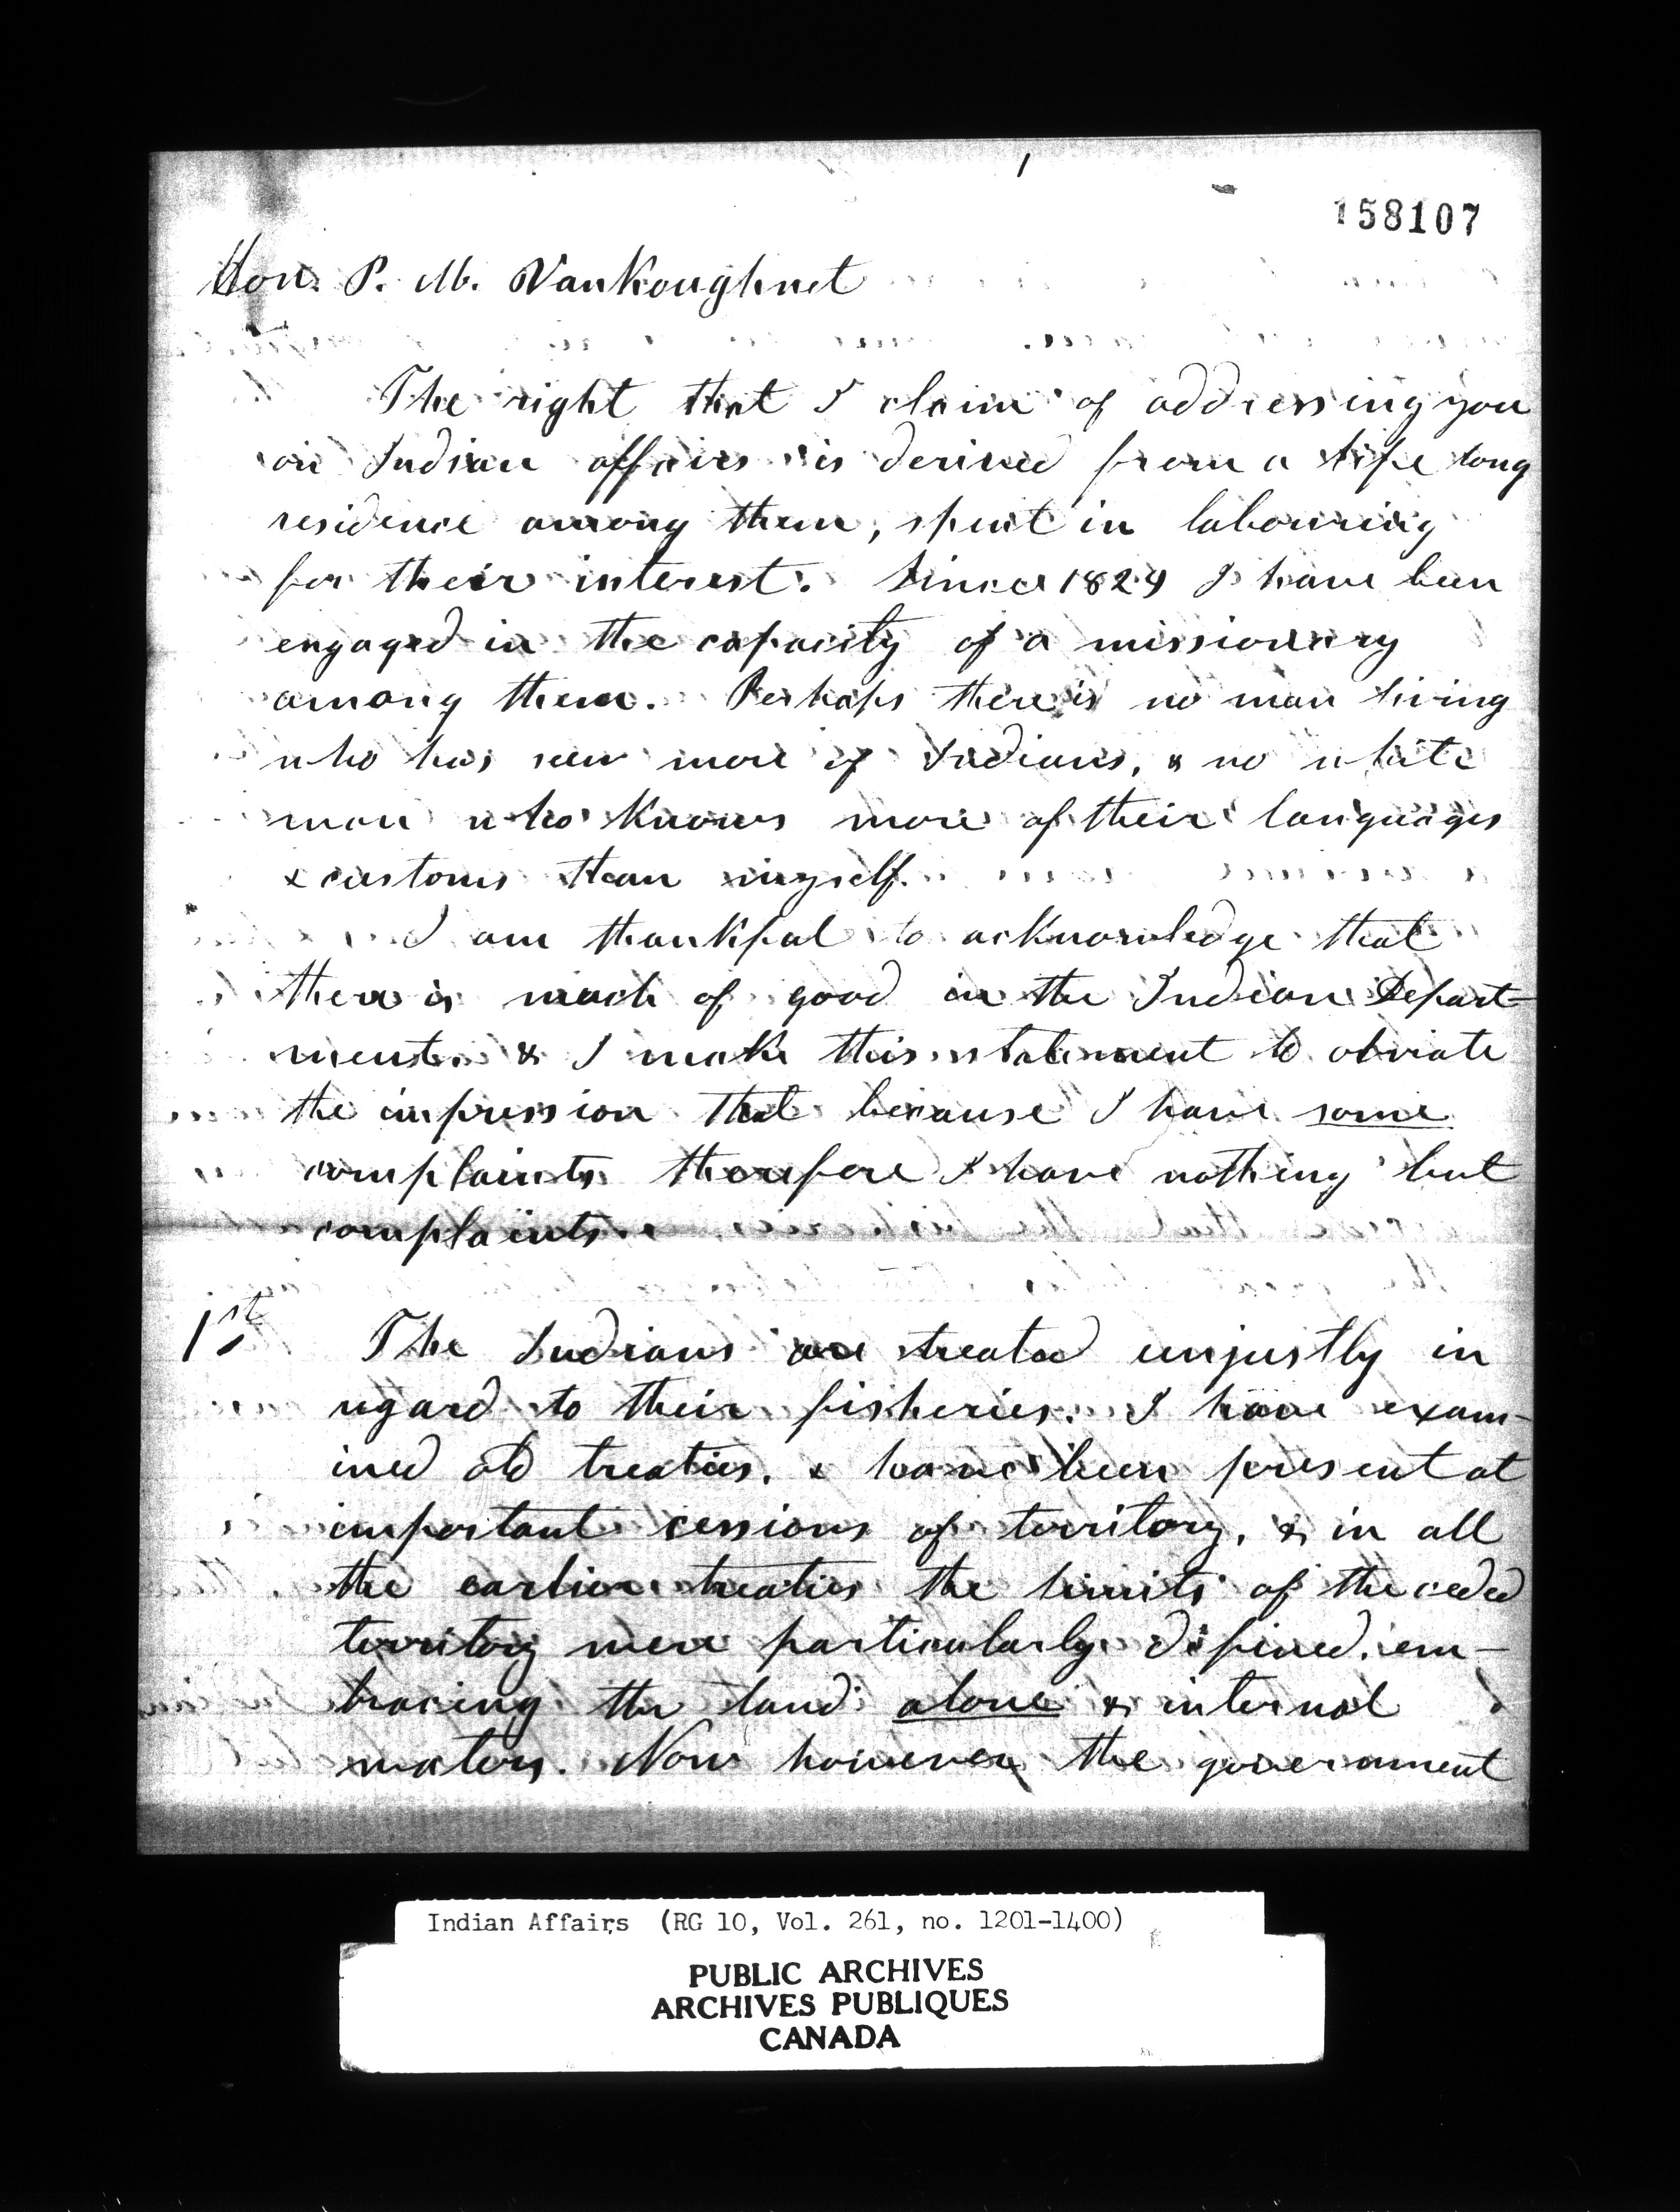 1
158107
Hon. P. M. VanKoughnet
The right that I claim of addressing you
on Indian affairs is derived from a life long
residence among them, spent in labouring
for their interest. Since 1829 I have been
engaged in the capacity of a missionary
among them. Perhaps there is no man living
who has seen more of Indians, & no white
man who knows more of their languages
& customs than myself.
I am thankful to acknowledge that
there is much of good in the Indian Depart-
ment. & I make this statement to obviate
the impression that because I have some
complaints therefore I have nothing but
complaints.
1st The Indians are treated unjustly in
regard to their fisheries. I have exam-
ined old treaties. & have been present at
important cessions of territory, & in all
the earlier treaties the limits of the ceded
territory were particularly defined. em-
bracing the land alone & internal
waters. Now however the government
Indian Affairs (RG 10, Vol. 261, no. 1201-1400)
PUBLIC ARCHIVES
ARCHIVES PUBLIQUES
CANADA